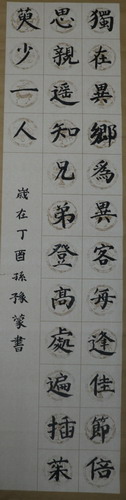 獨在異鄉為異客每逢佳節倍
思親遥知兄弟登高處遍插茱
萸少一人
歲在丁酉孫豫蒙書